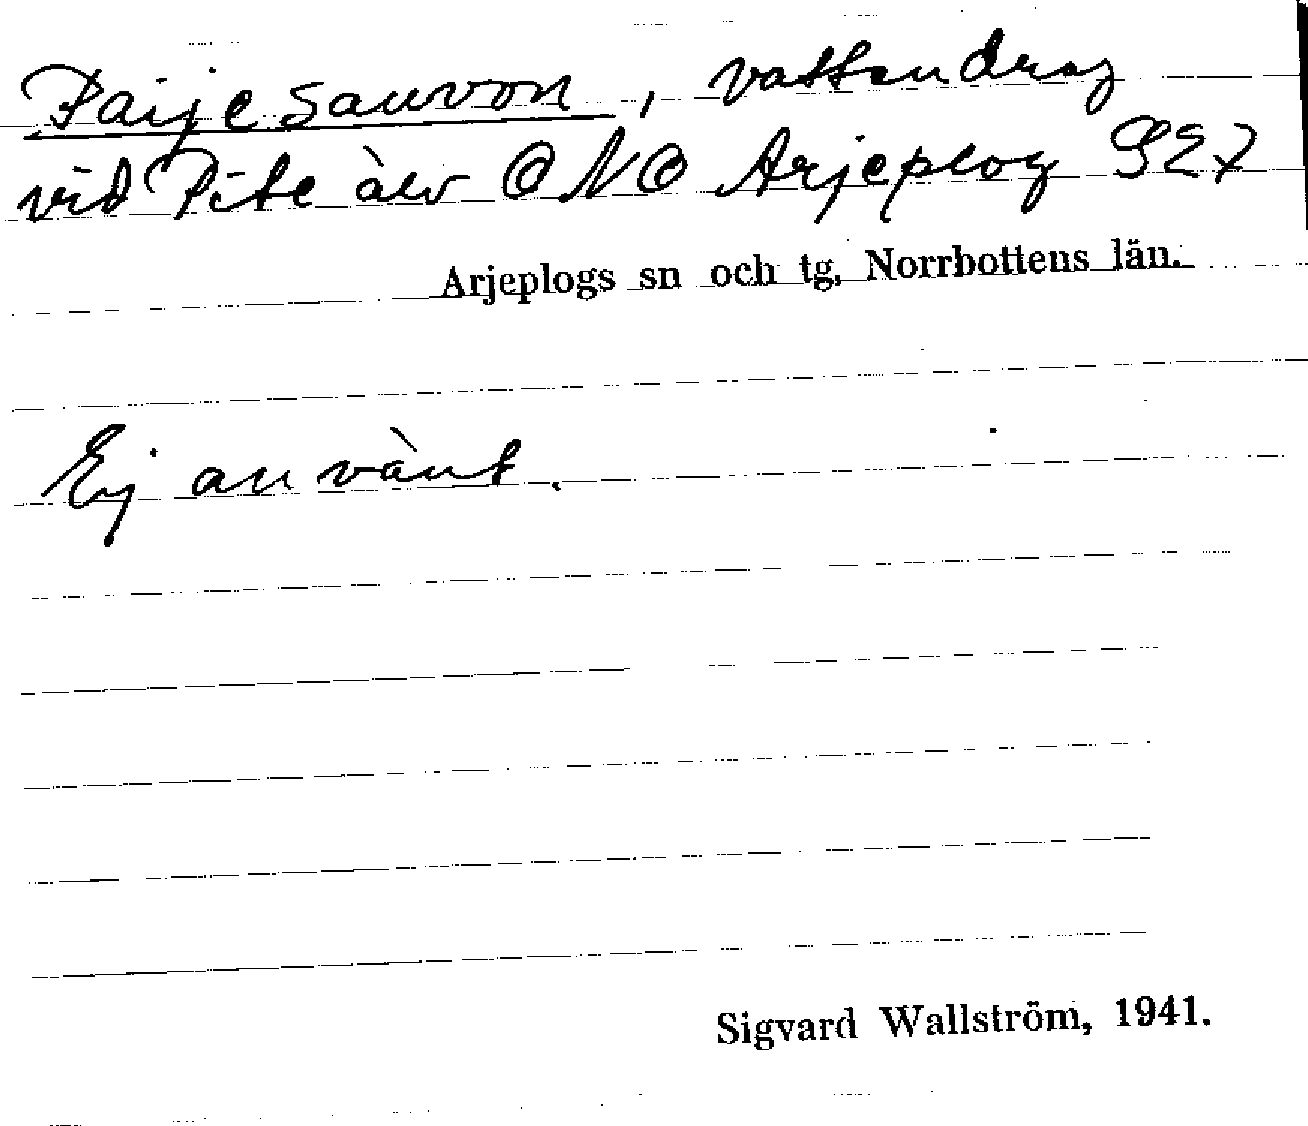 Paijesauvon, vattendrag
vid Pite älv ONO Arjeplog S27
Arjeplogs sn och tg, Norrbottens län.
Ej använt.
Sigvard Wallström, 1941.